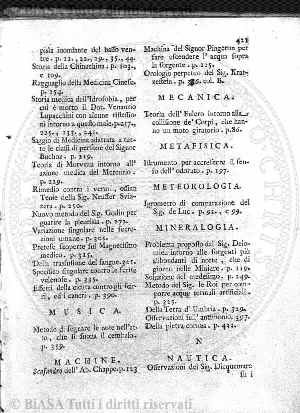 421
pisia inondante del basso ven-
tre. p. 11., 22., 29., 35., 44.
Storia della Chinachina. p. 103.,
e 109.
Ragguaglio della Medicina Cinese.
p. 154.
Storia medica dell'Idrofobia, per
cui è morto il Dot. Venanzio
Lupacchini con alcune riflessio-
ni intorno a questo male. p. 217.,
225., 233., 241.
Saggio di Medicina adattata a tut-
te le classi di persone del Signor
Buchoz. p. 219.
Teoria di Morveau intorno all'
azione medica del Mercurio.
p. 229.
Rimedio contro i vermi, ossian
Tenie della Sig. Neuffer Sviz-
zera. p. 250.
Nuovo metodo del Sig. Godin per
guarire la pleurisia. p. 272.
Variazione singolare nelle secre-
zioni umane. p. 305.
Pretese scoperte sul Magnetismo
medico. p. 325.
Della trasfusione del sangue. 321.
Specifico singolare contro le ferite
velenose. p. 335.
Effetti della morta contro gli scir-
ri, ed i cancri. p. 390.
MUSICA.
Metodo di segnare le note nell'at-
to, che si suona il cembalo.
p. 359.
MACHINE.
Scafandro dell'Ab. Chappe. p. 123
Machina del Signor Pingeron per
fare ascendere l'acqua sopra
la sorgente. p. 125.
Orologio perpetuo del Sig. Krat-
zestein. p. vol. B.
MECANICA.
Teoria dell'Eulero intorno alla
collisione de' Corpi, che han-
no un moto giratorio. p. 86.
METAFISICA.
Istrumento per accrescere il sen-
so dell'odorato. p. 197.
METEOROLOGIA.
Igrometro di comparazione del
Sig. de Luc, p. 92., e 99.
MINERALOGIA.
Problema proposto dal Sig. Delo-
mieu intorno alle sorgenti più
abbondanti di notte, che di
giorno nelle Miniere. p. 119.
Soluzione del medesimo. p. 249.
Metodo del Sig. le Roi per com-
porre acque termali artificiali.
p. 325.
Della Terra d'Umbria. p. 329.
Osservazioni sull'antimonio. 397.
Della pietra cornea. p. 421.
N
NAUTICA.
Osservazioni del Sig. Dicquemare
su i
BiASA Tutti i diritti riservati